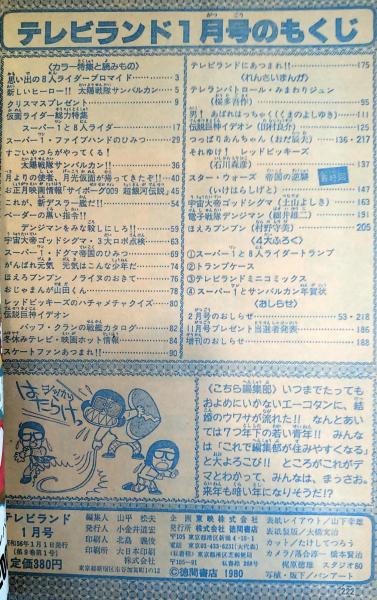 テレビランド1月号のもくじ
《カラー特集と読みもの》
思い出の8人ライダーブロマイド……3
新しいヒーロー!! 太陽戦隊サンバルカン……5
クリスマスプレゼント……9
仮面ライダー総力特集
スーパー1と8人ライダー……17
スーパー1・ファイブハンドのひみつ……29
すごいやつらがやってくる!
太陽戦隊サンバルカン!!……36
月よりの使者、月光仮面が帰ってきたぞ!!……40
お正月映画情報「サイボーグ009 超銀河伝説」……45
これが、新デスラー艦だ!……54
ベーダーの黒い指令!!
デンジマンをみな殺しにしろ!!……59
宇宙大帝ゴッドシグマ・3大ロボ点検……63
スーパー1・ドグマ帝国のひみつ……69
がんばれ元気 元気はこんな少年だ……74
ほえろブンブン メライヌのおきて……76
おじゃまんが山田くん……78
レッドビッキーズのハチャメチャクイズ……80
伝説巨神イデオン
バッフ・クランの戦艦カタログ……82
冬休みテレビ・映画ホット情報……84
スケートファンあつまれ!!……90
テレビランドにあつまれ!!……175
《れんさいまんが》
テレランパトロール・みまわりジュン
(桜多吾作)……95
男!あばれはっちゃく(くまのよしゆき)……111
伝説巨神イデオン(田村良介)……121
つっぱりあんちゃん(おだ辰夫)……136・217
それゆけ!レッドビッキーズ
(石川森彦)……137
スター・ウォーズ 帝国の逆襲
(いけはらしげと)……147
宇宙大帝ゴッドシグマ(上山よしき)……163
電子戦隊デンジマン(細井雄二)……191
ほえろブンブン(村野守美)……205
《4大ふろく》
①スーパー1と8人ライダートランプ
②トランプケース
③テレビランドミニコミックス
④スーパー1とサンバルカン年賀状
《おしらせ》
2月号のおしらせ……53・218
11月号プレゼント当選者発表……186
増刊のおしらせ……188
《こちら編集部》いつまでたっても
およめにいかないエーコタンに、結
婚のウワサが流れた!! なんとあい
ては7つ年下の若い青年!! みんな
は「これで編集部が住みやすくなる」
と大よろこび!! ところがこれがデ
マとわかって、みんなは、まっさお。
来年も暗い年になりそうだ!?
テレビランド
1月号
昭和56年1月1日発行
(第9巻第1号)
定価380円
編集人 山平松夫
発行人 小金井道宏
印刷人 北島義俊
印刷所 大日本印刷
株式会社
東京都新宿区市谷加賀町1の12
企画 東映株式会社
発行所 株式会社 徳間書店
〒105 東京都港区新橋4-10-1
〒105-91
©徳間書店 1980
表紙レイアウト/山下幸雄
表紙製版/大橋文治
カット/たけしてつろう
カメラ/落合淳一 橋本賢治
梶原徳雄 スタジオ80
写植・版下/バンアート
222